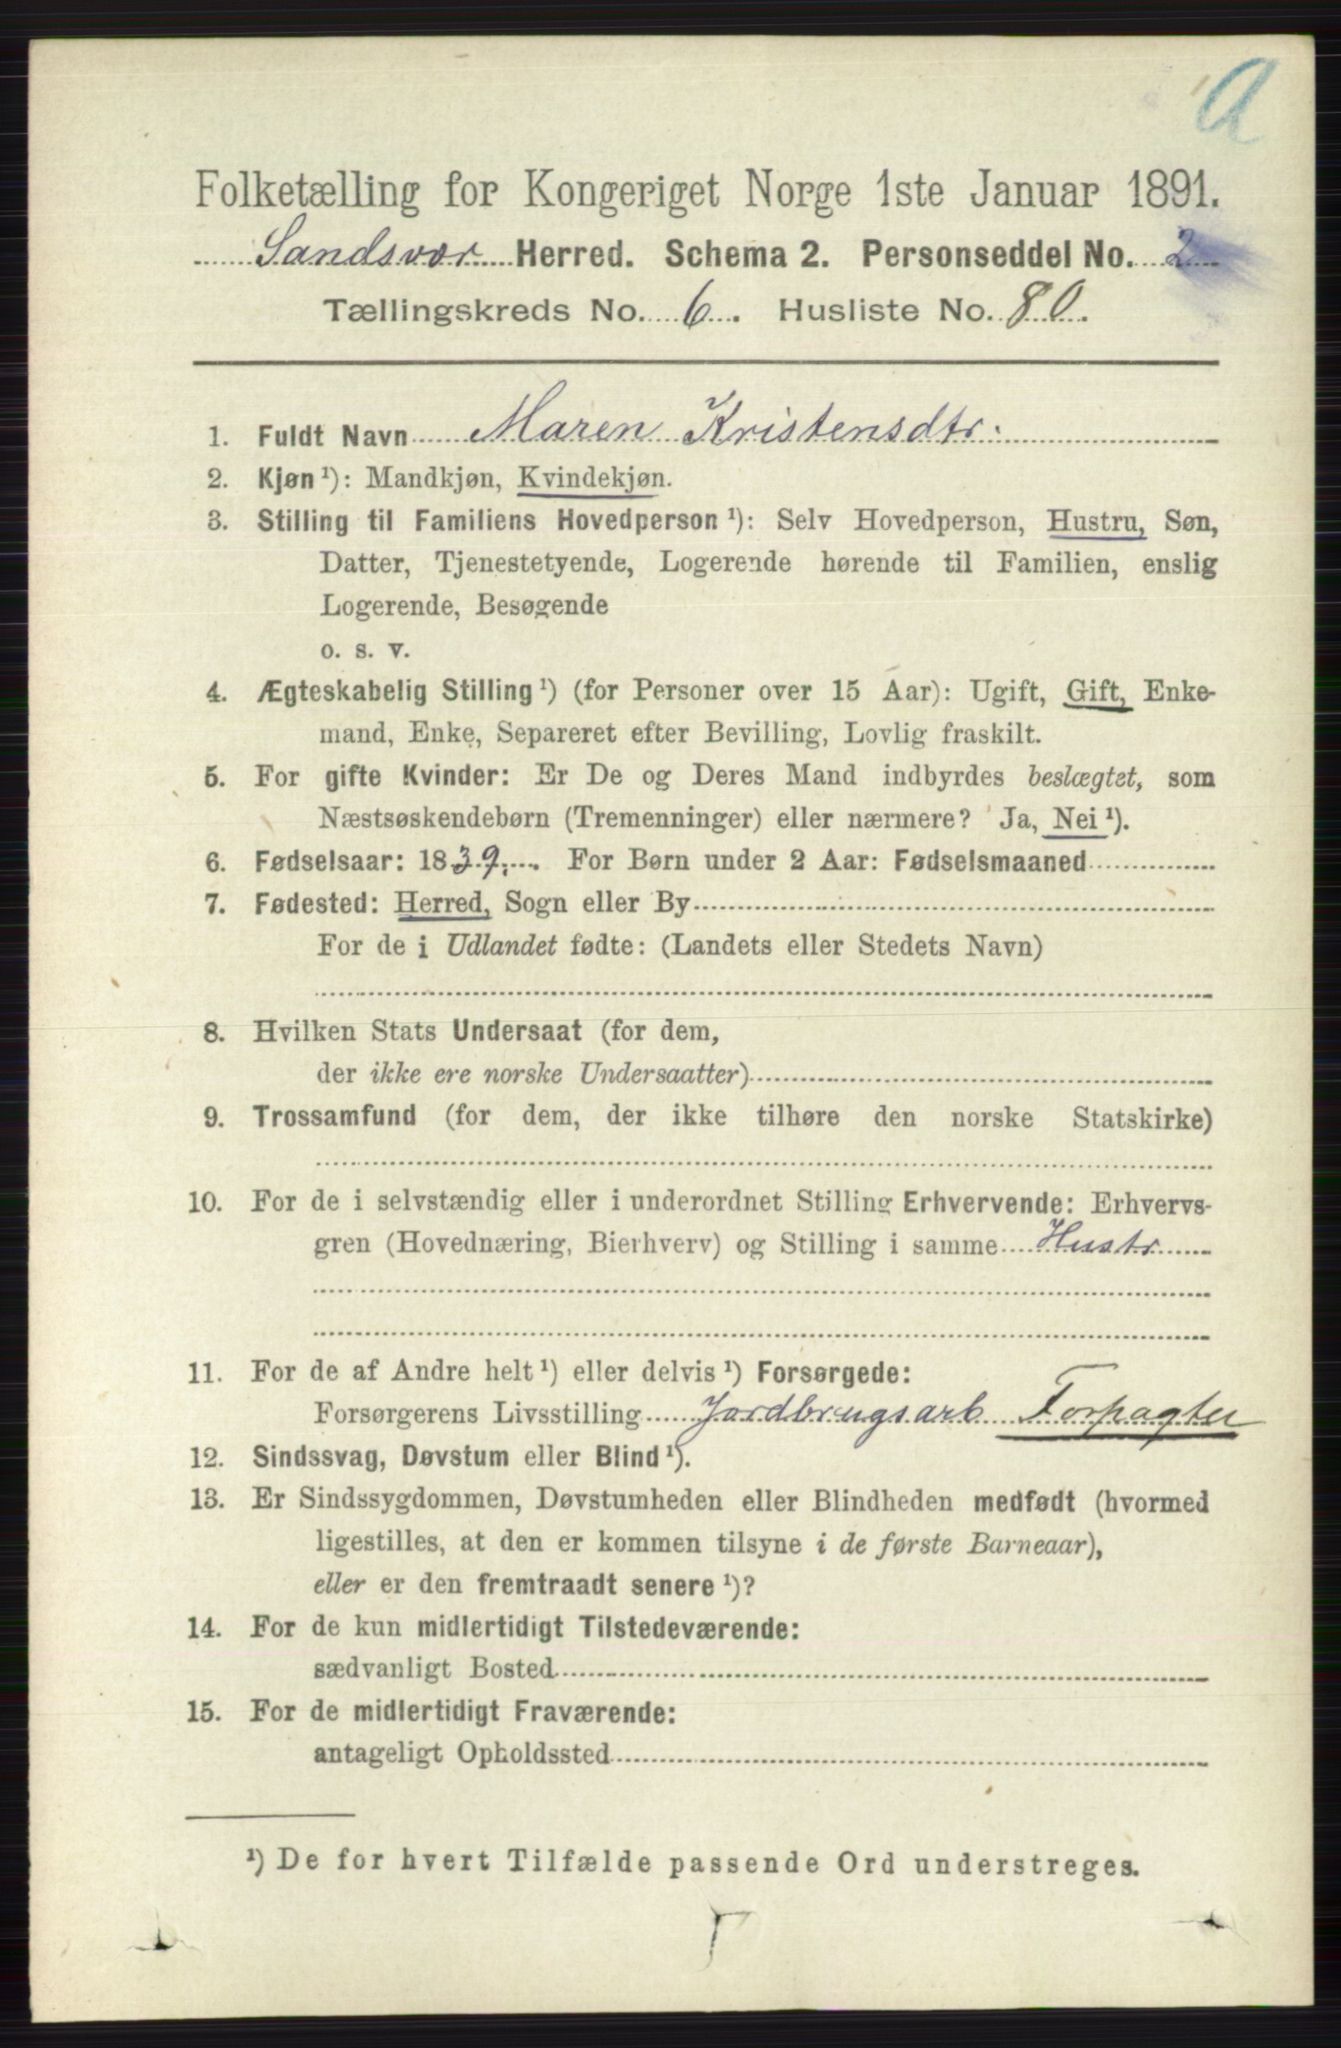 A
Folketælling for Kongeriget Norge 1ste Januar 1891.
Sandsvær Herred. Schema 2. Personseddel No. 2
Tællingskreds No. 6. Husliste No. 80.
1. Fuldt Navn Maren Kristensdtr.
2. Kjøn¹): Mandkjøn, Kvindekjøn.
3. Stilling til Familiens Hovedperson¹): Selv Hovedperson, Hustru, Søn,
Datter, Tjenestetyende, Logerende hørende til Familien, enslig
Logerende, Besøgende
o. s. v.
4. Ægteskabelig Stilling¹) (for Personer over 15 Aar): Ugift, Gift, Enke-
mand, Enke, Separeret efter Bevilling, Lovlig fraskilt.
5. For gifte Kvinder: Er De og Deres Mand indbyrdes beslægtet, som
Næstsøskendebørn (Tremenninger) eller nærmere? Ja, Nei¹).
6. Fødselsaar: 1839. For Børn under 2 Aar: Fødselsmaaned
7. Fødested: Herred, Sogn eller By
For de i Udlandet fødte: (Landets eller Stedets Navn)
8. Hvilken Stats Undersaat (for dem,
der ikke ere norske Undersaatter)
9. Trossamfund (for dem, der ikke tilhøre den norske Statskirke)
10. For de i selvstændig eller i underordnet Stilling Erhvervende: Erhvervs-
gren (Hovednæring, Bierhverv) og Stilling i samme Hustr
11. For de af Andre helt¹) eller delvis¹) Forsørgede:
Forsørgerens Livsstilling Jordbrugsarb Forpagter
12. Sindssvag, Døvstum eller Blind¹).
13. Er Sindssygdommen, Døvstumheden eller Blindheden medfødt (hvormed
ligestilles, at den er kommen tilsyne i de første Barneaar),
eller er den fremtraadt senere¹)?
14. For de kun midlertidigt Tilstedeværende:
sædvanligt Bosted
15. For de midlertidigt Fraværende:
antageligt Opholdssted
¹) De for hvert Tilfælde passende Ord understreges.